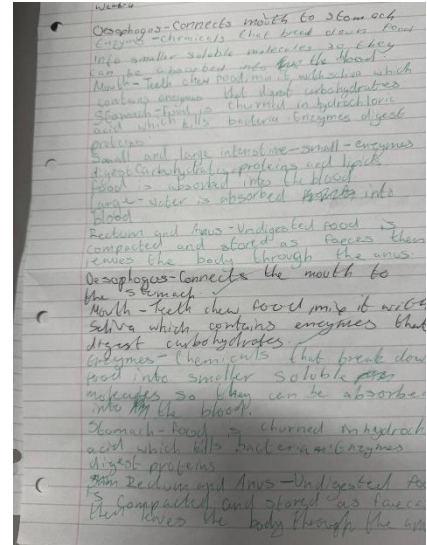 Oesophagus - Connects mouth to stomach
Enzyme - chemicals that break down food
into smaller soluble molecules so they
can be absorbed into the blood.
Mouth - Teeth chew food, mix it with saliva which
contains enzymes that digest carbohydrates
Stomach - food is churned in hydrochloric
acid which kills bacteria enzymes digest
proteins
Small and large intestine - small - enzymes
digest carbohydrates, proteins and lipids
food is absorbed into the blood
large - water is absorbed into
blood
Rectum and Anus - Undigested food is
compacted and stored as faeces then
leaves the body through the anus.
Oesophagus - Connects the mouth to
the stomach.
Mouth - Teeth chew food, mix it with
saliva which contains enzymes that
digest carbohydrates.
Enzymes - Chemicals that break down
food into smaller soluble
molecules so they can be absorbed
into the blood.
Stomach - Food is churned in hydroch
acid which kills bacteria Enzymes
digest proteins
Rectum and Anus - Undigested fo
is compacted and stored as faeces
then leaves the body through the anu